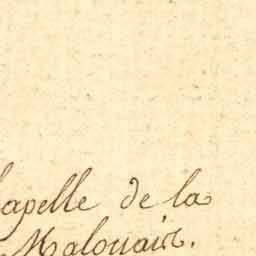 hapelle de la
Malouair.